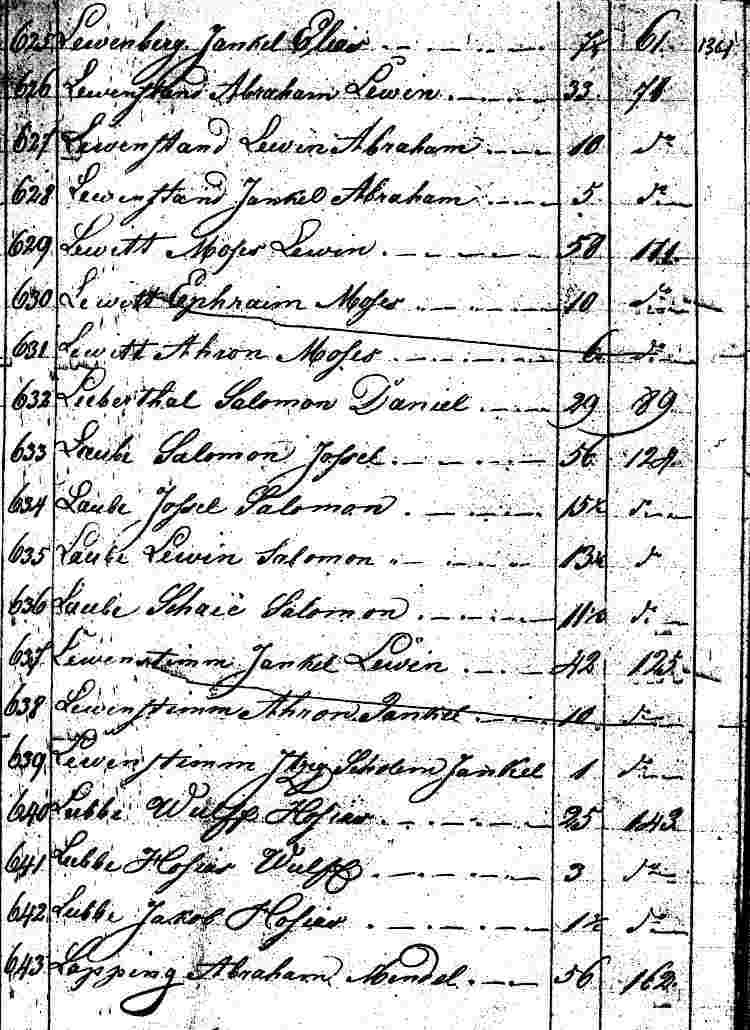 625 Lewenberg Jankel Elias 7½ 61. 1361
626 Lewenstand Abraham Lewin 33. 78
627 Lewenstand Lewin Abraham 10 do
628 Lewenstand Jankel Abraham 5. do
629 Lewitt Moses Lewin 58 111.
630 Lewitt Ephraim Moses 10 do
631 Lewitt Ahron Moses 6 do
632 Lieberthal Salomon Daniel 29 89.
633 Laube Salomon Jossel 56.
634 Laube Jossel Salomon 15½ do
635 Laube Lewin Salomon 13½ do
636 Laube Schaie Salomon 11½ do
637 Lewenstimm Jankel Lewin 42 125.
638 Lewenstimm Ahron Jankel 10 do
639 Lewenstimm Itzig Scholem Jankel 1 do
640 Lubbe Wulff Hosias 25 143
641 Lubbe Hosias Wulff 3 do
642 Lubbe Jakob Hosias 1½ do
643 Lapping Abraham Mendel 56 162.